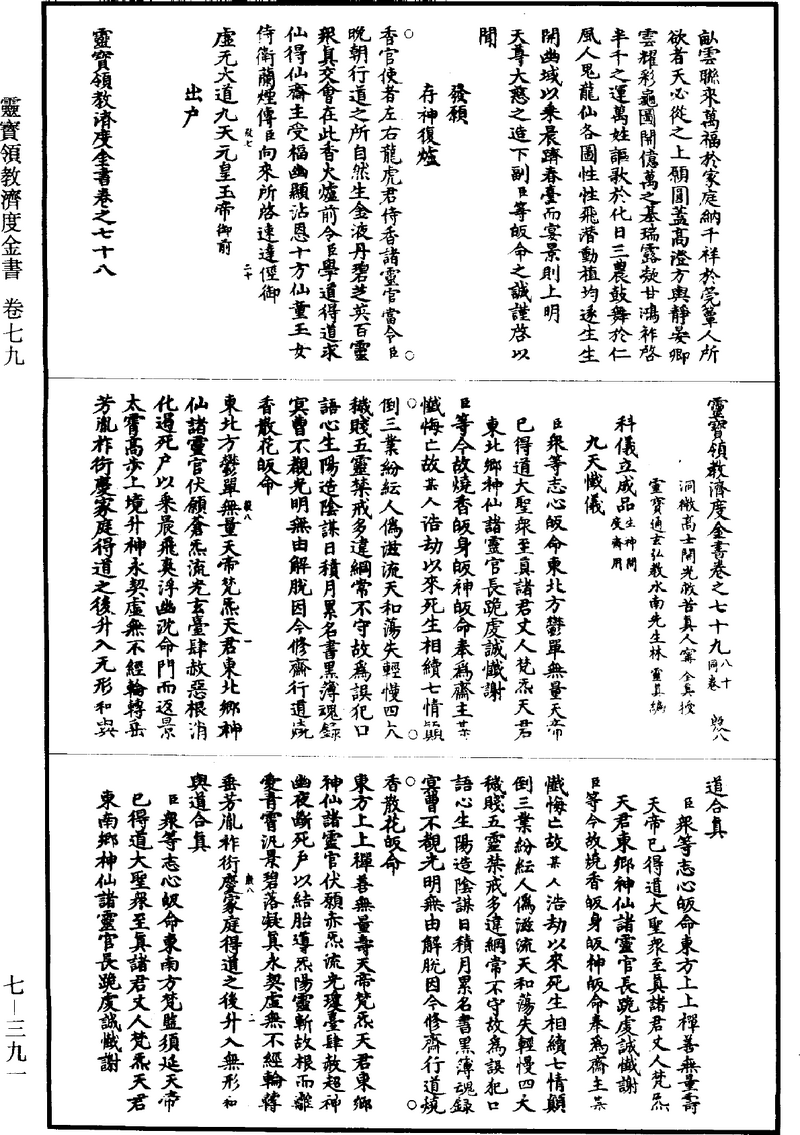 畝雲聯來萬福於家庭納千祥於莞簟人所
欲者天必從之上願圓蓋高澄方輿靜晏卿
雲耀彩龜圖開億萬之基瑞露凝甘鴻祚啓
半千之運萬姓謳歌於化日三農鼓舞於仁
風人鬼龍仙各圖性性飛潛動植均遂生生
開幽域以乘晨躋春臺而宴景則上明
天尊大慈之造下副臣等皈命之誠謹啓以
聞
發願
存神復爐
香官使者左右龍虎君侍香諸靈官當令臣
晚朝行道之所自然生金液丹碧芝英百靈
衆真交會在此香火爐前令臣學道得道求
仙得仙齋主受福幽顯沾恩十方仙童玉女
侍衛蘭煙傳臣向來所啓速達徑御
虛无大道九天元皇玉帝御前
出戶
靈寶領教濟度金書卷之七十八
靈寶領教濟度金書卷之七十九 八十同卷
洞微高士開光救苦真人甯全真授
靈寶通玄弘教水南先生林靈真編
科儀立成品 生神開度齋用
九天懺儀
臣衆等志心皈命東北方鬱單無量天帝
已得道大聖衆至真諸君丈人梵炁天君
東北鄉神仙諸靈官長跪虔誠懺謝
臣等今故燒香皈身皈神皈命奉爲齋主某
懺悔亡故某人浩劫以來死生相續七情顛
倒三業紛紜人僞滋流天和蕩失輕慢四大
穢賤五靈禁戒多違綱常不守故爲誤犯口
語心生陽造陰謀日積月累名書黑簿魂錄
冥曹不覩光明無由解脫因今修齋行道燒
香散花皈命
東北方鬱單無量天帝梵炁天君東北鄉神
仙諸靈官伏願蒼炁流光玄臺肆赦惡根消
化過死戶以乘晨飛爽浮幽沈命門而返景
太霄高步上境升神永契虛無不經輪轉垂
芳胤祚衍慶家庭得道之後升入无形和與
道合真
臣衆等志心皈命東方上上禪善無量壽
天帝已得道大聖衆至真諸君丈人梵炁
天君東鄉神仙諸靈官長跪虔誠懺謝
臣等今故燒香皈身皈神皈命奉爲齋主某
懺悔亡故某人浩劫以來死生相續七情顛
倒三業紛紜人僞滋流天和蕩失輕慢四大
穢賤五靈禁戒多違綱常不守故爲誤犯口
語心生陽造陰謀日積月累名書黑簿魂錄
冥曹不覩光明無由解脫因今修齋行道燒
香散花皈命
東方上上禪善無量壽天帝梵炁天君東鄉
神仙諸靈官伏願赤炁流光瓊臺肆赦超神
幽夜斷死戶以結胎導炁陽靈斬故根而離
愛青霄汎景碧落凝真永契虛無不經輪轉
垂芳胤祚衍慶家庭得道之後升入無形和
與道合真
臣衆等志心皈命東南方梵監須延天帝
已得道大聖衆至真諸君丈人梵炁天君
東南鄉神仙諸靈官長跪虔誠懺謝
靈寶領教濟度金書 卷七九
七—三九一